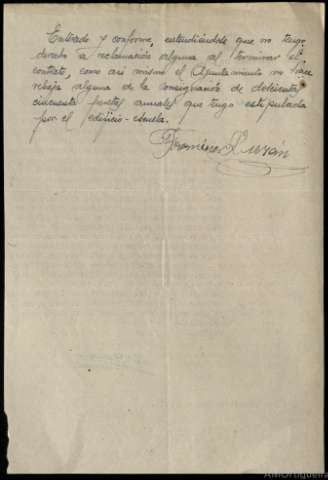 Enterado y conforme, entendiéndose que no tengo
derecho a reclamación alguna al terminar el
contrato, como asi mismo el Ayuntamiento no hace
rebaja alguna de la consignación de doscientas
cincuenta pesetas anuales que tengo estipulada
por el edificio-escuela.
Francisco Durán
AMOrtigueira